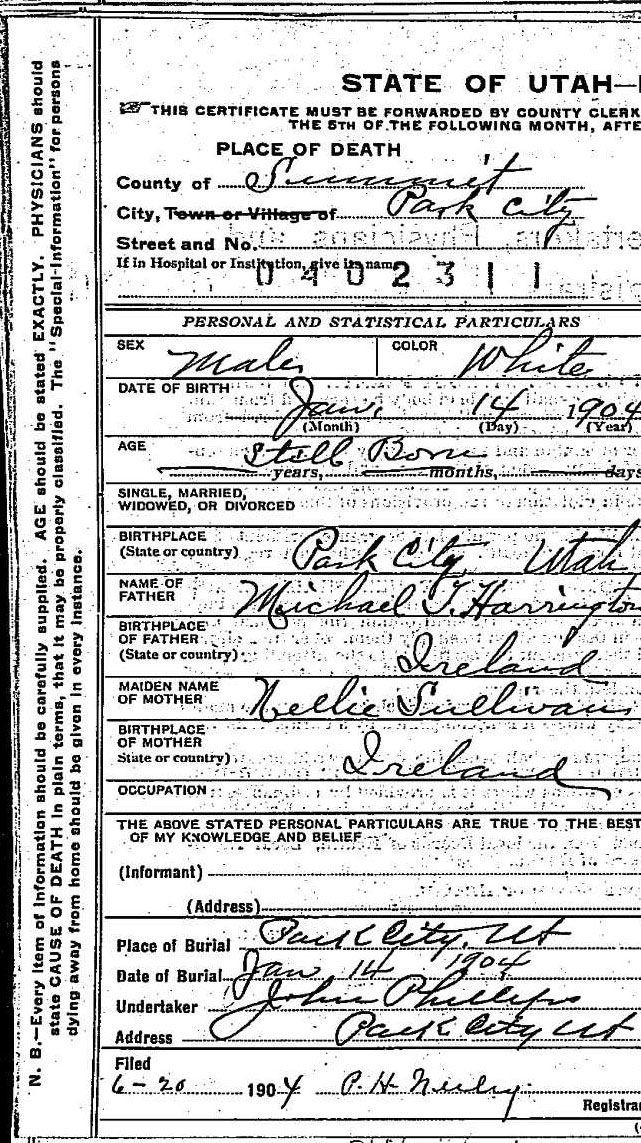 STATE OF UTAH—
THIS CERTIFICATE MUST BE FORWARDED BY COUNTY CLERK
THE 5TH OF THE FOLLOWING MONTH, AFTE
PLACE OF DEATH
County of Summit
City, Town or Village of Park City
Street and No.
If in Hospital or Institution, give its name
0402311
PERSONAL AND STATISTICAL PARTICULARS
SEX Male COLOR White
DATE OF BIRTH
Jan. 14 1904
(Month) (Day) (Year)
AGE Still Born
years, months, days
SINGLE, MARRIED,
WIDOWED, OR DIVORCED
BIRTHPLACE
(State or country) Park City, Utah
NAME OF
FATHER Michael T. Harrington
BIRTHPLACE
OF FATHER
(State or country) Ireland
MAIDEN NAME
OF MOTHER Nellie Sullivan
BIRTHPLACE
OF MOTHER
State or country) Ireland
OCCUPATION
THE ABOVE STATED PERSONAL PARTICULARS ARE TRUE TO THE BEST
OF MY KNOWLEDGE AND BELIEF
(Informant)
(Address)
Place of Burial Park City, Ut
Date of Burial Jan 14 1904
Undertaker John Phillips
Address Park City Ut
Filed
6-20 1904 P. H.
Registra
N. B.—Every item of information should be carefully supplied. AGE should be stated EXACTLY. PHYSICIANS should
state CAUSE OF DEATH in plain terms, that it may be properly classified. The "Special Information" for persons
dying away from home should be given in every instance.